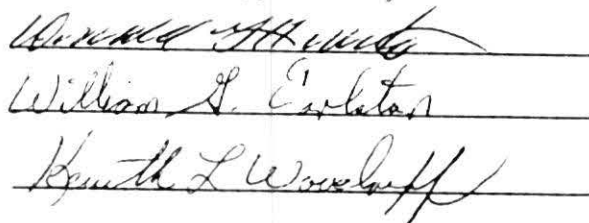 Donald
William G. Carleton
Kenneth L Woodruff